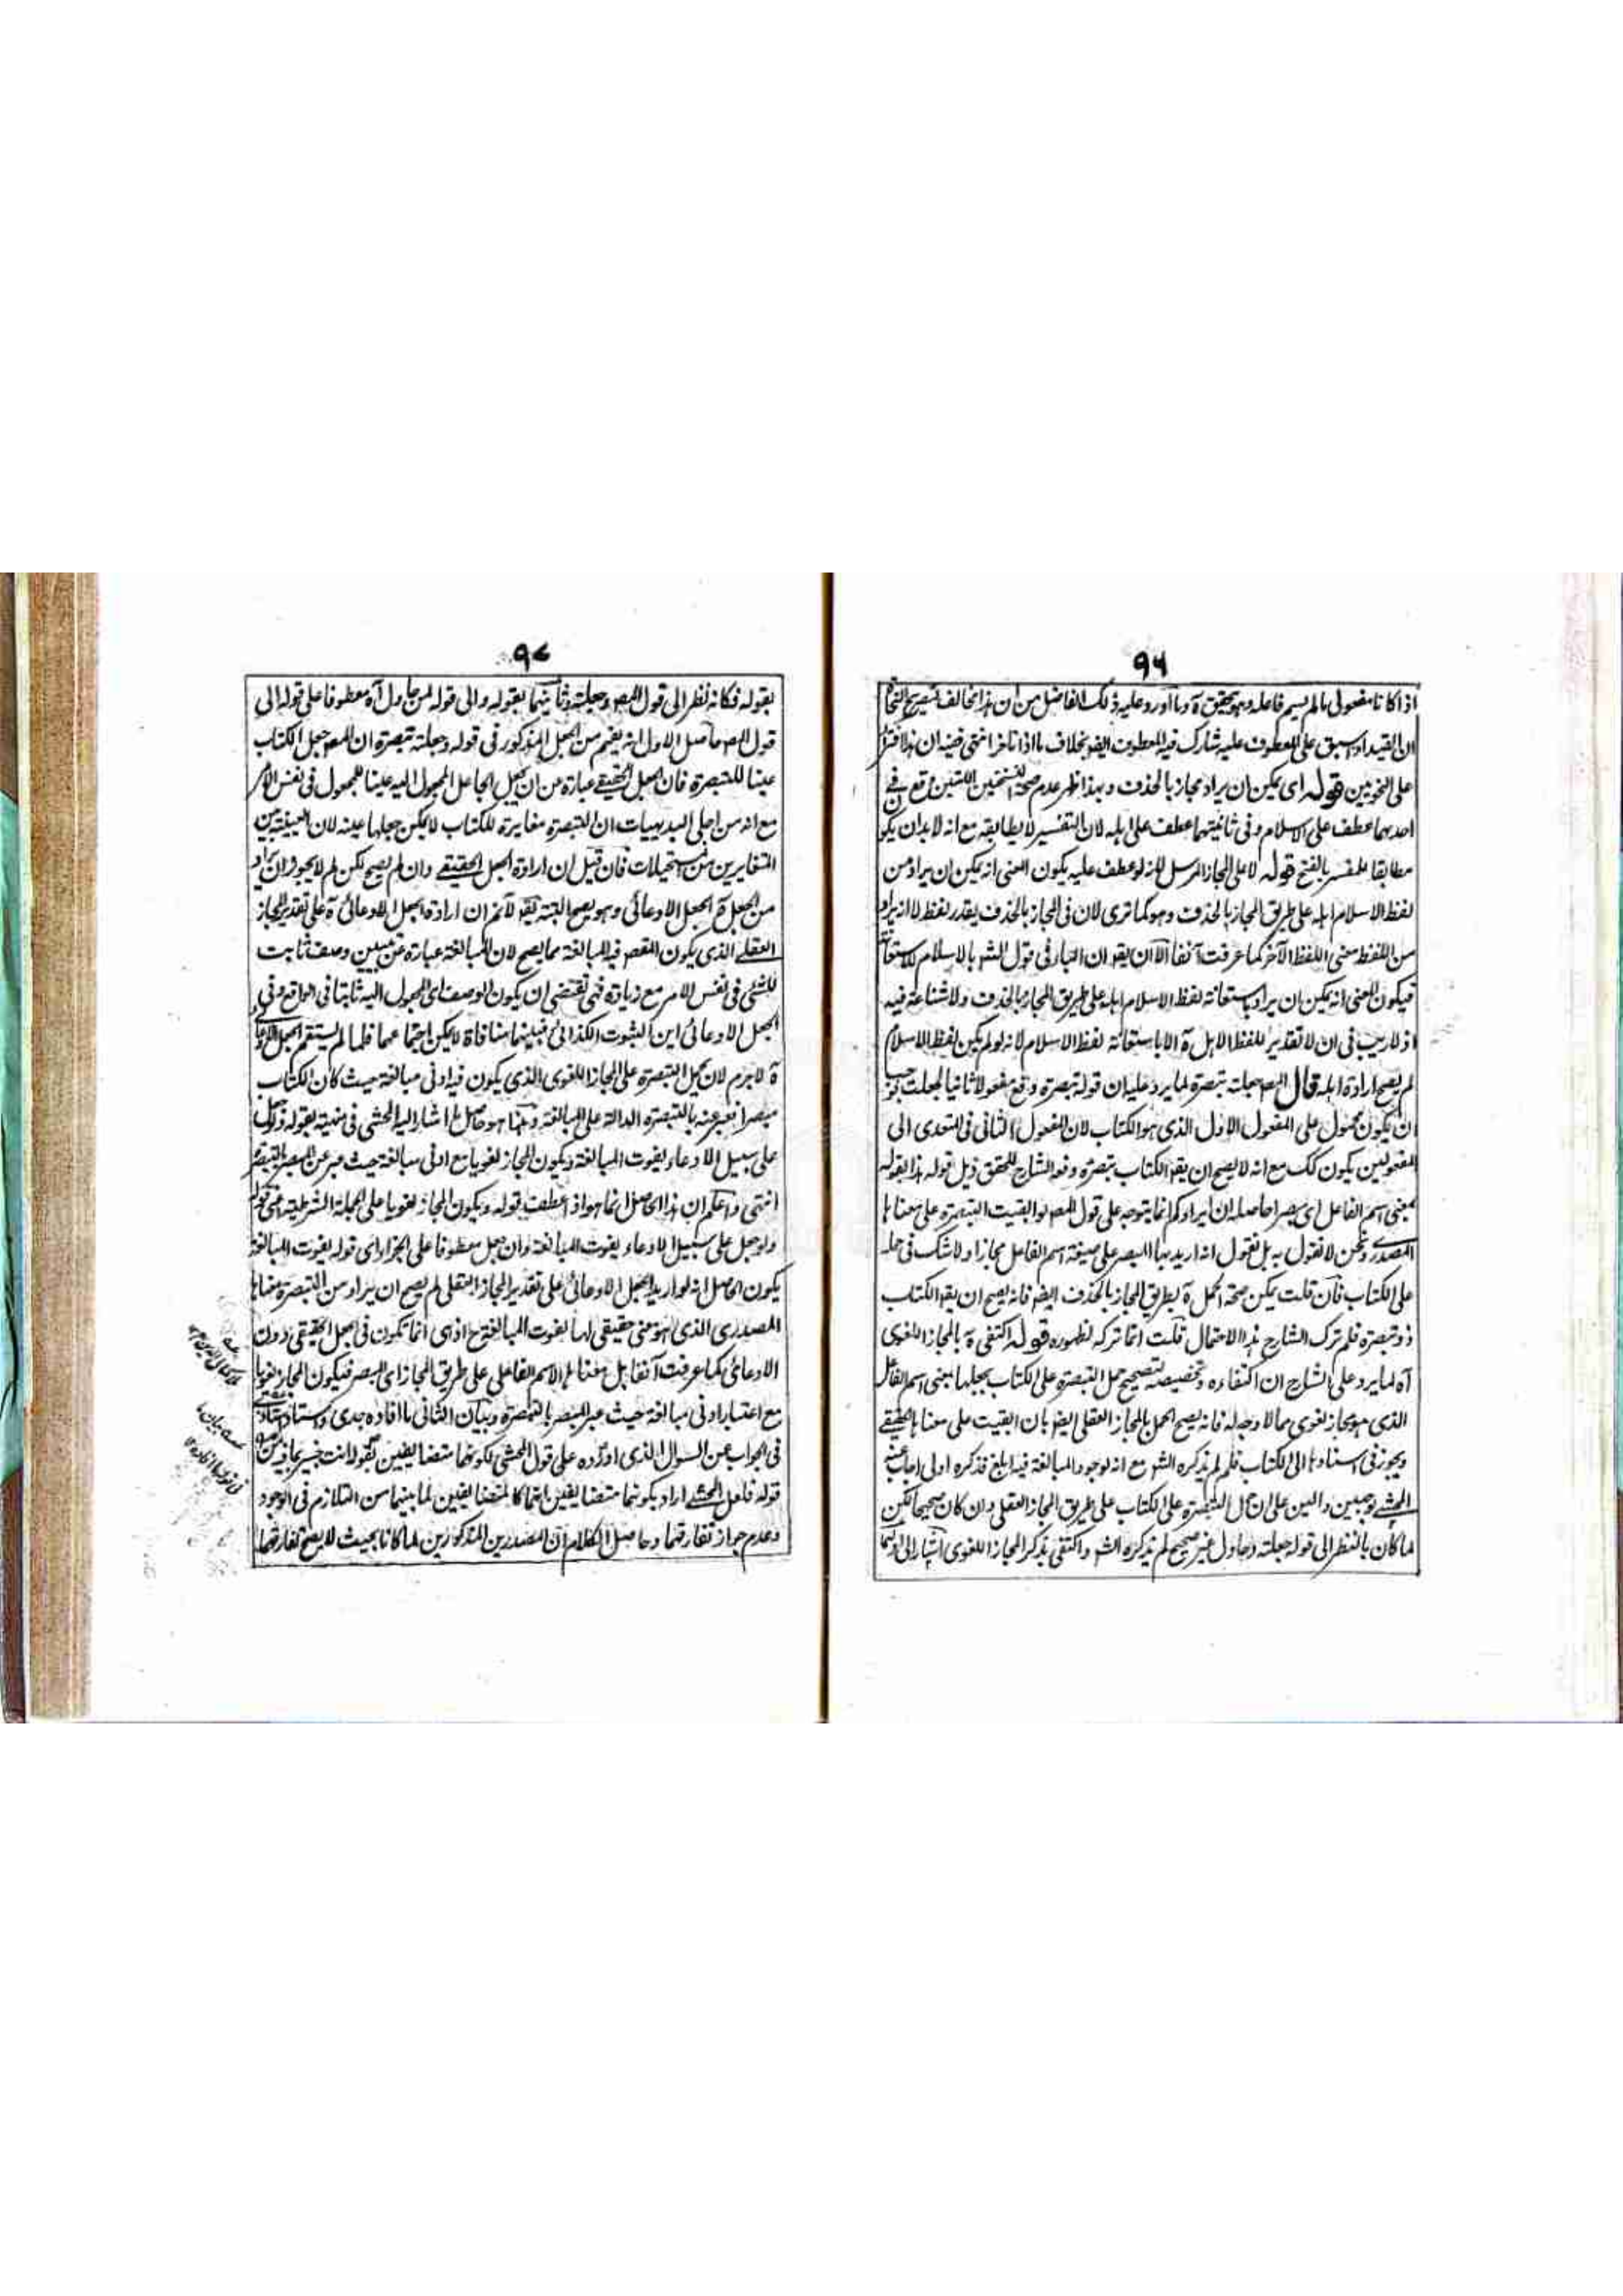 ٩٦
اذا كانا مفعولى مالم يسم فاعله وهو تحقيق آه وما اورد عليه ذلك الفاضل من ان هذا مخالف لتصريح النحاة
ان القيد اذا سبق على المعطوف عليه شارك فيه المعطوف ايضا بخلاف ما اذا تاخر انتهى ففيه ان هذا افتراء
على النحويين قوله اى يمكن ان يراد مجاز بالحذف وبهذا ظهر عدم صحة النسختين اللتين وقع فى
احدهما عطف على الاسلام وفى ثانيتهما عطف على اهله لان التفسير لا يطابقه مع انه لا بد ان يكون
مطابقا للمفسر بالفتح قوله لا على المجاز المرسل اذ لو عطف عليه يكون المعنى انه يمكن ان يراد من
لفظ الاسلام اهله على طريق المجاز بالحذف وهو كما ترى لان فى المجاز بالحذف يقدر لفظ لا انه يراد
من اللفظ معنى اللفظ الآخر كما عرفت آنفا الا ان يقو ان الباء فى قول الشم بالاسلام للاستعانة
فيكون المعنى انه يمكن ان يراد باستعانة لفظ الاسلام اهله على طريق المجاز بالحذف ولا شناعة فيه
اذ لا ريب فى ان لا تقدير للفظ الاهل آه الا باستعانة لفظ الاسلام لانه لو لم يكن لفظ الاسلام
لم يصح ارادة اهله قال المصم جعلته تبصرة لما يرد عليه ان قوله تبصرة وقع مفعولا ثانيا لجعلت
ان يكون محمول على المفعول الاول الذى هو الكتاب لان المفعول الثانى فى المتعدى الى
المفعولين يكون كك مع انه لا يصح ان يقو الكتاب تبصرة دفعه الشارح المحقق ذيل قوله هذا بقوله
بمعنى اسم الفاعل اى مبصرا حاصله ان ايرادكم انما يتوجه على قول المصم لو ابقيت التبصرة على معناها
المصدرى ونحن لا نقول به بل نقول انه اريد بها المبصر على صيغة اسم الفاعل مجازا ولا شك فى حمله
على الكتاب فان قلت يمكن صحة الحمل آه بطريق المجاز بالحذف ايضا فانه يصح ان يقو الكتاب
ذو تبصرة فلم ترك الشارح هذا الاحتمال قلت انما تركه لظهوره قوله اكتفى به بالمجاز اللغوى
آه لما يرد على الشارح ان اكتفاءه وتخصيصه لتصحيح حمل التبصرة على الكتاب بجعلها بمعنى اسم الفاعل
الذى هو مجاز لغوى مما لا وجه له فانه يصح الحمل بالمجاز العقلى ايضا بان ابقيت على معناها الحقيقى
ويجوز فى اسنادها الى الكتاب فلم لم يذكره الشم مع انه لوجود المبالغة فيه ابلغ فذكره اولى اجاب عنه
المحشى بوجهين دالين على ان حمل التبصرة على الكتاب على طريق المجاز العقلى وان كان صحيحا لكن
لما كان بالنظر الى قوله جعلته وحاول غير صحيح لم يذكره الشم واكتفى بذكر المجاز اللغوى اشار الى اولهما
٩٧
بقوله فكانه نظر الى قول المصم وجعلته وثانيهما بقوله والى قوله لمن حاول آه معطوفا على قوله الى
قول المصم حاصل الاول انه يفهم من الجعل المذكور فى قوله وجعلته تبصرة ان المصم جعل الكتاب
عينا للتبصرة فان الجعل الحقيقى عبارة عن ان يجعل الجاعل المجعول اليه عينا للمجعول فى نفس الامر
مع انه من اجلى البديهيات ان التبصرة مغايرة للكتاب لا يمكن جعلها عينه لان العينية بين
المتغايرين من المستحيلات فان قيل ان ارادة الجعل الحقيقى وان لم يصح لكن لم لا يجوز ان يراد
من الجعل آه الجعل الادعائى وهو يصح البتة يقو لانم ان ارادة الجعل الادعائى آه على تقدير المجاز
العقلى الذى يكون المقصم فيه المبالغة مما يصح لان المبالغة عبارة عن تبيين وصف ثابت
للشئ فى نفس الامر مع زيادة فهى تقتضى ان يكون الوصف اى المجعول اليه ثابتا فى الواقع وفى
الجعل الادعائى اين الثبوت الكذائى فبينهما منافاة لا يمكن اجتماعهما فلما لم يستقم الجعل الادعائى
آه لا جرم لان يحمل التبصرة على المجاز اللغوى الذى يكون فيه ادنى مبالغة حيث كان الكتاب
مبصرا فعبر عنه بالتبصرة الدالة على المبالغة وهذا هو حاصل ما اشار اليه المحشى فى منهيته بقوله ولو جعل
على سبيل الادعاء يفوت المبالغة ويكون المجاز لغويا مع ادنى مبالغة حيث عبر عن المبصر بالتبصرة
انتهى واعلم ان هذا الحاصل انما هو اذا عطف قوله ويكون المجاز لغويا على الجملة الشرطية اعنى قوله
ولو جعل على سبيل الادعاء يفوت المبالغة وان جعل معطوفا على الجزاء اى قوله يفوت المبالغة
يكون الحاصل انه لو اريد الجعل الادعائى على تقدير المجاز العقلى لم يصح ان يراد من التبصرة معناها
المصدرى الذى هو معنى حقيقى لها لفوت المبالغة ح اذ هى انما تكون فى الجعل الحقيقى دون
الادعائى كما عرفت آنفا بل معناها الاسم الفاعلى على طريق المجاز اى المبصر فيكون المجاز لغويا
مع اعتبار ادنى مبالغة حيث عبر المبصر بالتبصرة وبيان الثانى ما افاده جدى واستاد استادى
فى الجواب عن السوال الذى اورده على قول المحشى لكونهما متضايفين بقوله انت خبير بما فيه من
قوله فلعل المحشى اراد بكونهما متضايفين انهما كالمتضايفين لما بينهما من التلازم فى الوجود
وعدم جواز تفارقهما وحاصل الكلام ان المصدرين المذكورين لما كانا بحيث لا يصح تفارقهما